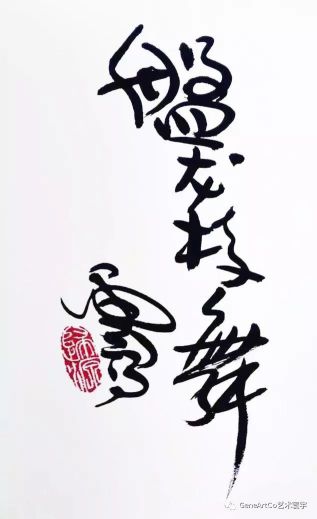 盤龙枝舞
GeneArtCo艺术寰宇